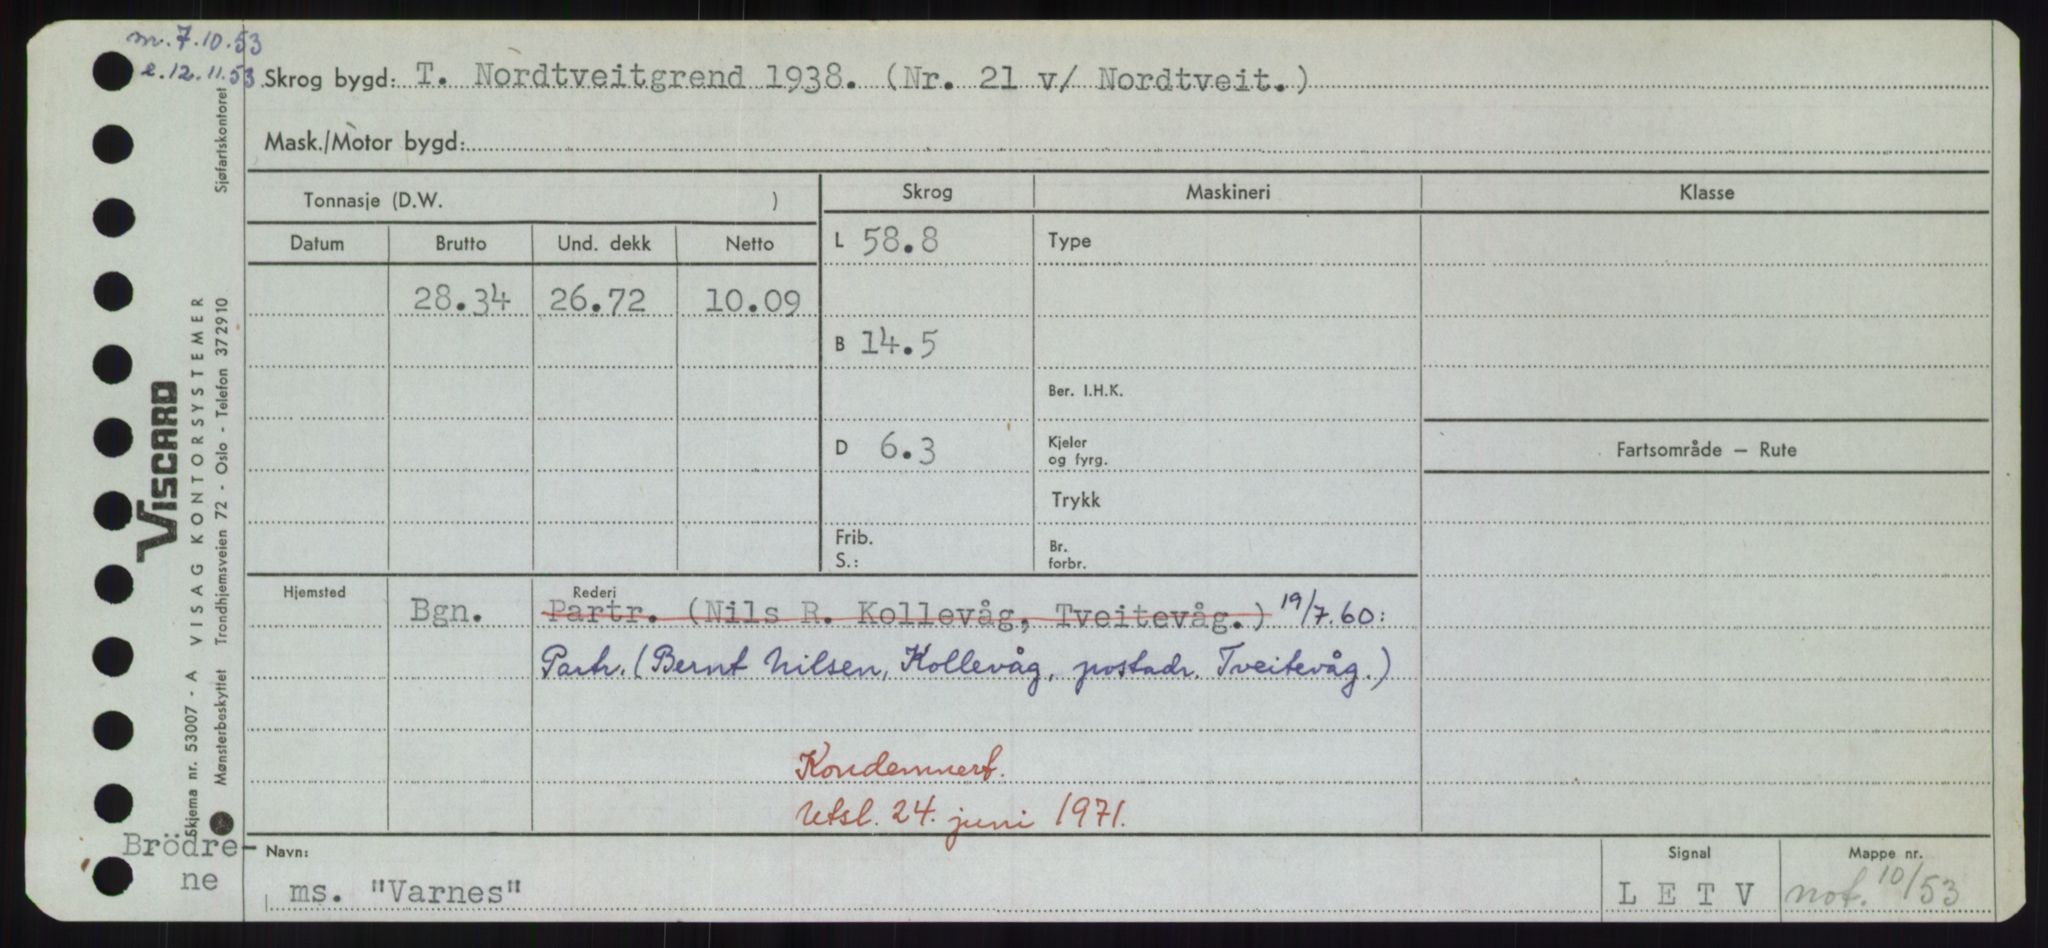 m. 7.10.53
e. 12.11.53
Skrog bygd: T. Nordtveitgrend 1938. (Nr. 21 v/ Nordtveit.)
Mask./Motor bygd:
Tonnasje (D.W. )
Skrog
Maskineri
Klasse
Datum
Brutto
Und. dekk
Netto
L 58.8
Type
28.34
26.72
10.09
B 14.5
Ber. I.H.K.
D 6.3
Kjeler
og fyrg.
Fartsområde — Rute
Trykk
Frib.
S.:
Br.
forbr.
Hjemsted
Rederi
Bgn.
Partr. (Nils R. Kollevåg, Tveitevåg.) 19/7.60:
Partr. (Bernt Nilsen, Kollevåg, postadr. Tveitevåg.)
Kondemnert.
Utsl. 24. juni 1971.
Brödre-
ne
Navn:
ms. "Varnes"
Signal
L E T V
Mappe nr.
not. 10/53
VISCARD
Skjema nr. 53007 - A VISAG KONTORSYSTEMER
Mønsterbeskyttet Trondhjemsveien 72 - Oslo - Telefon 372910 Sjøfartskontoret